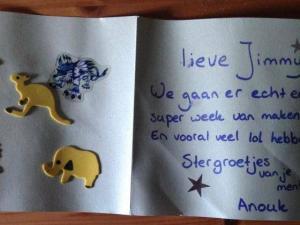 lieve Jimmy
We gaan er echt een
super week van maken
En vooral veel lol hebbe
Stergroetjes
van je
men
Anouk